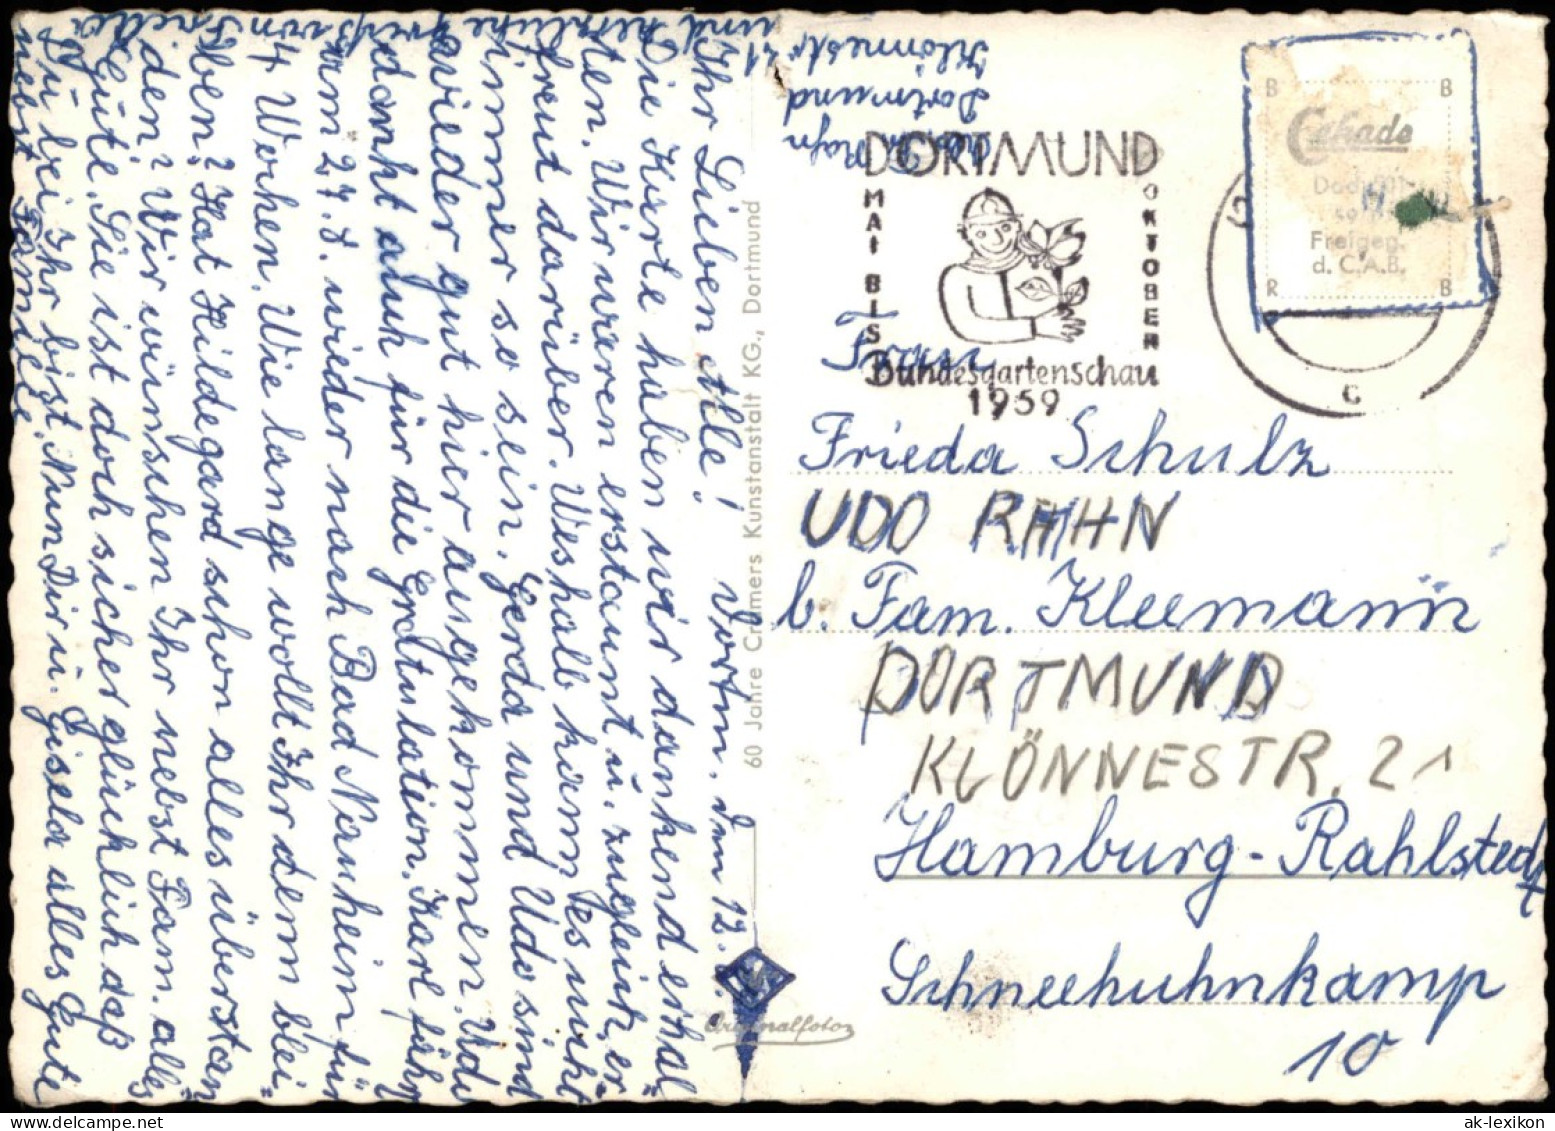 Dortm. den 12.
Ihr Lieben Alle!
Die Karte haben wir dankend erhal=
ten. Wir waren erstaunt u. zugleich er=
freut darüber. Weshalb kann es nicht
immer so sein. Gerda und Udo sind
wieder gut hier angekommen. Udo
dankt auch für die Gratulation. Karl fährt
am 27.8. wieder nach Bad Nauheim für
4 Wochen. Wie lange wollt Ihr denn blei=
ben? Hat Hildegard schon alles überstan
den? Wir wünschen Ihr nebst Fam. alles
Gute. Sie ist doch sicher glücklich daß
Du bei Ihr bist. Nun Dir u. Gisela alles Gute
nebst Familie.
und herzliche Grüße von Frieda
60 Jahre Cramers Kunstanstalt KG., Dortmund
Originalfoto
Rahn
Dortmund
Klönnestr 21
DORTMUND
MAI BIS
OKTOBER
Bundesgartenschau
1959
c
B B
Cekade
Freigeg.
d. C.A.B.
R B
Frau
Frieda Schulz
UDO RAHN
b. Fam. Kleemann
DORTMUND
KLÖNNESTR. 21
Hamburg-Rahlstedt
Schneehuhnkamp
10
ak-lexikon